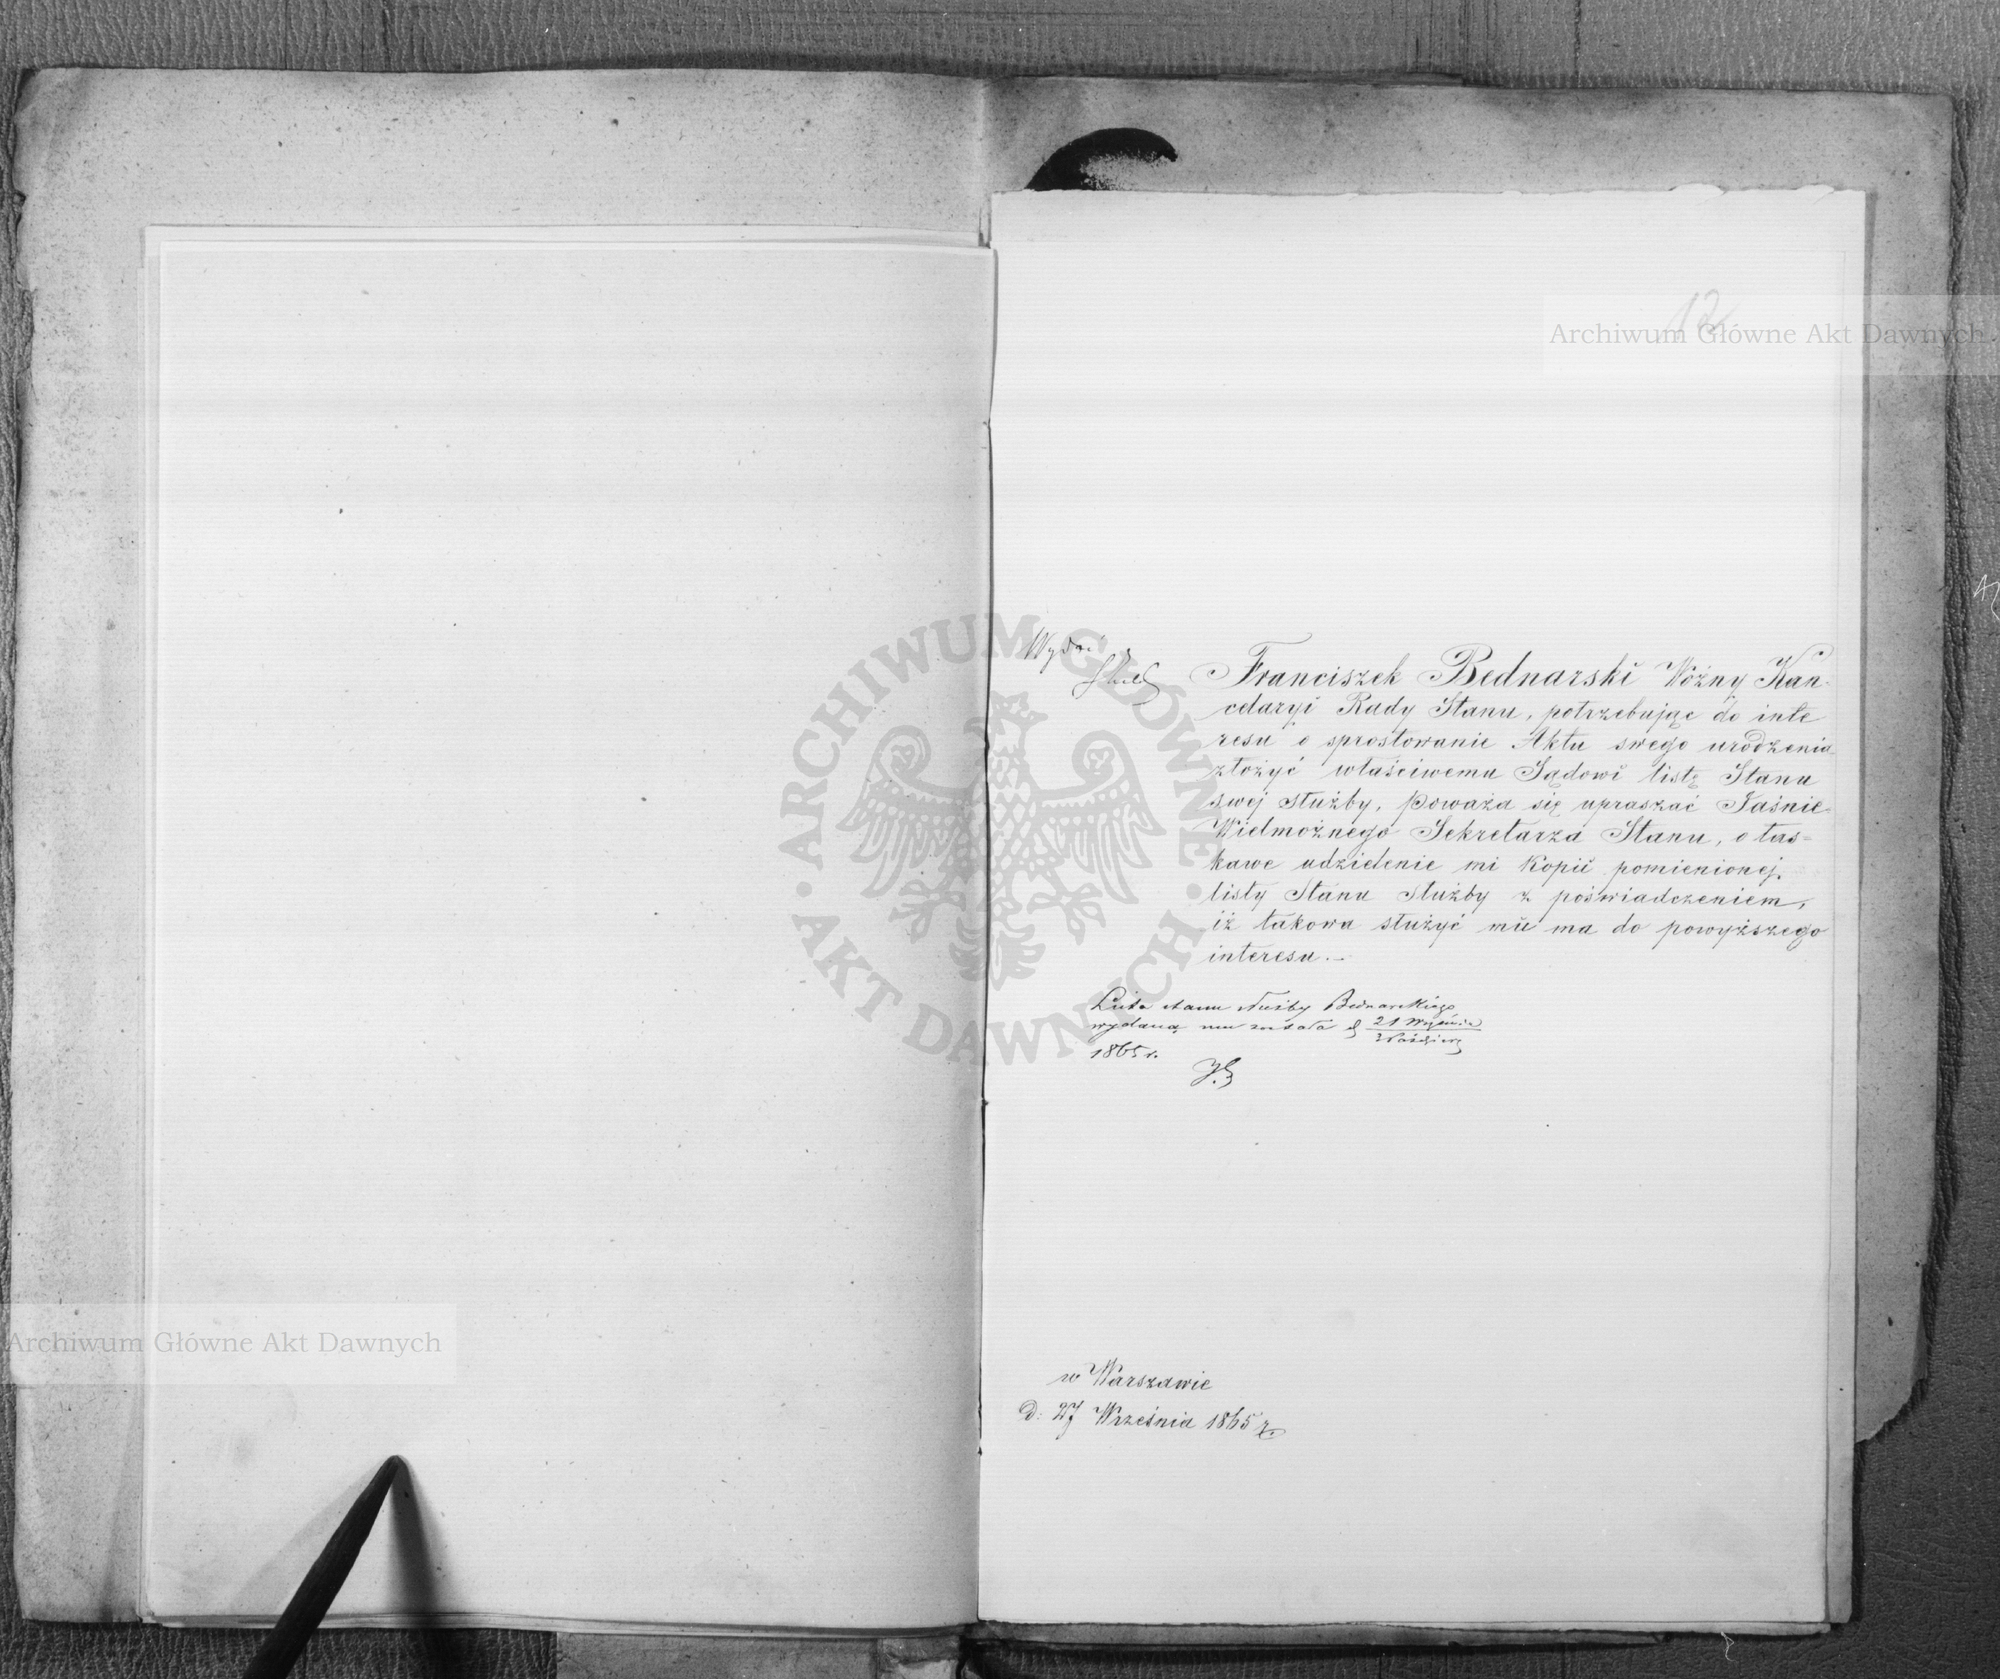 12
Archiwum Główne Akt Dawnych
Wydać
Franciszek Bednarski Woźny Kan-
celaryi Rady Stanu, potrzebując do inte
resu o sprostowanie Aktu swego urodzenia
złożyć właściwemu Sądowi listę Stanu
swej służby, Poważa się upraszać Jaśnie-
Wielmożnego Sekretarza Stanu, o łas-
kawe udzielenie mi Kopii pomienionej
listy Stanu służby z poświadczeniem,
iż takowa służyć mu ma do powyższego
interesu.—
ARCHIWUM GŁÓWNE AKT DAWNYCH
Lista stanu służby Bednarskiego
wydaną mu została d 21 Września
3 Paździer
1865 r.
w Warszawie
D: 27 Września 1865 r.
Archiwum Główne Akt Dawnych